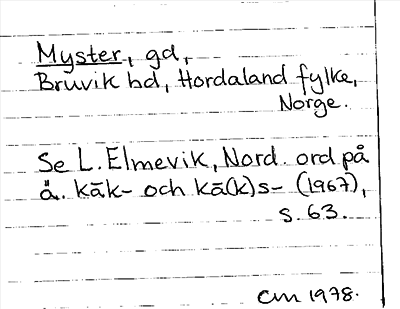 Myster, gd,
Bruvik hd, Hordaland fylke,
Norge.
Se L. Elmevik, Nord. ord på
ä. kāk- och kā(k)s- (1967),
s. 63.
CM 1978.